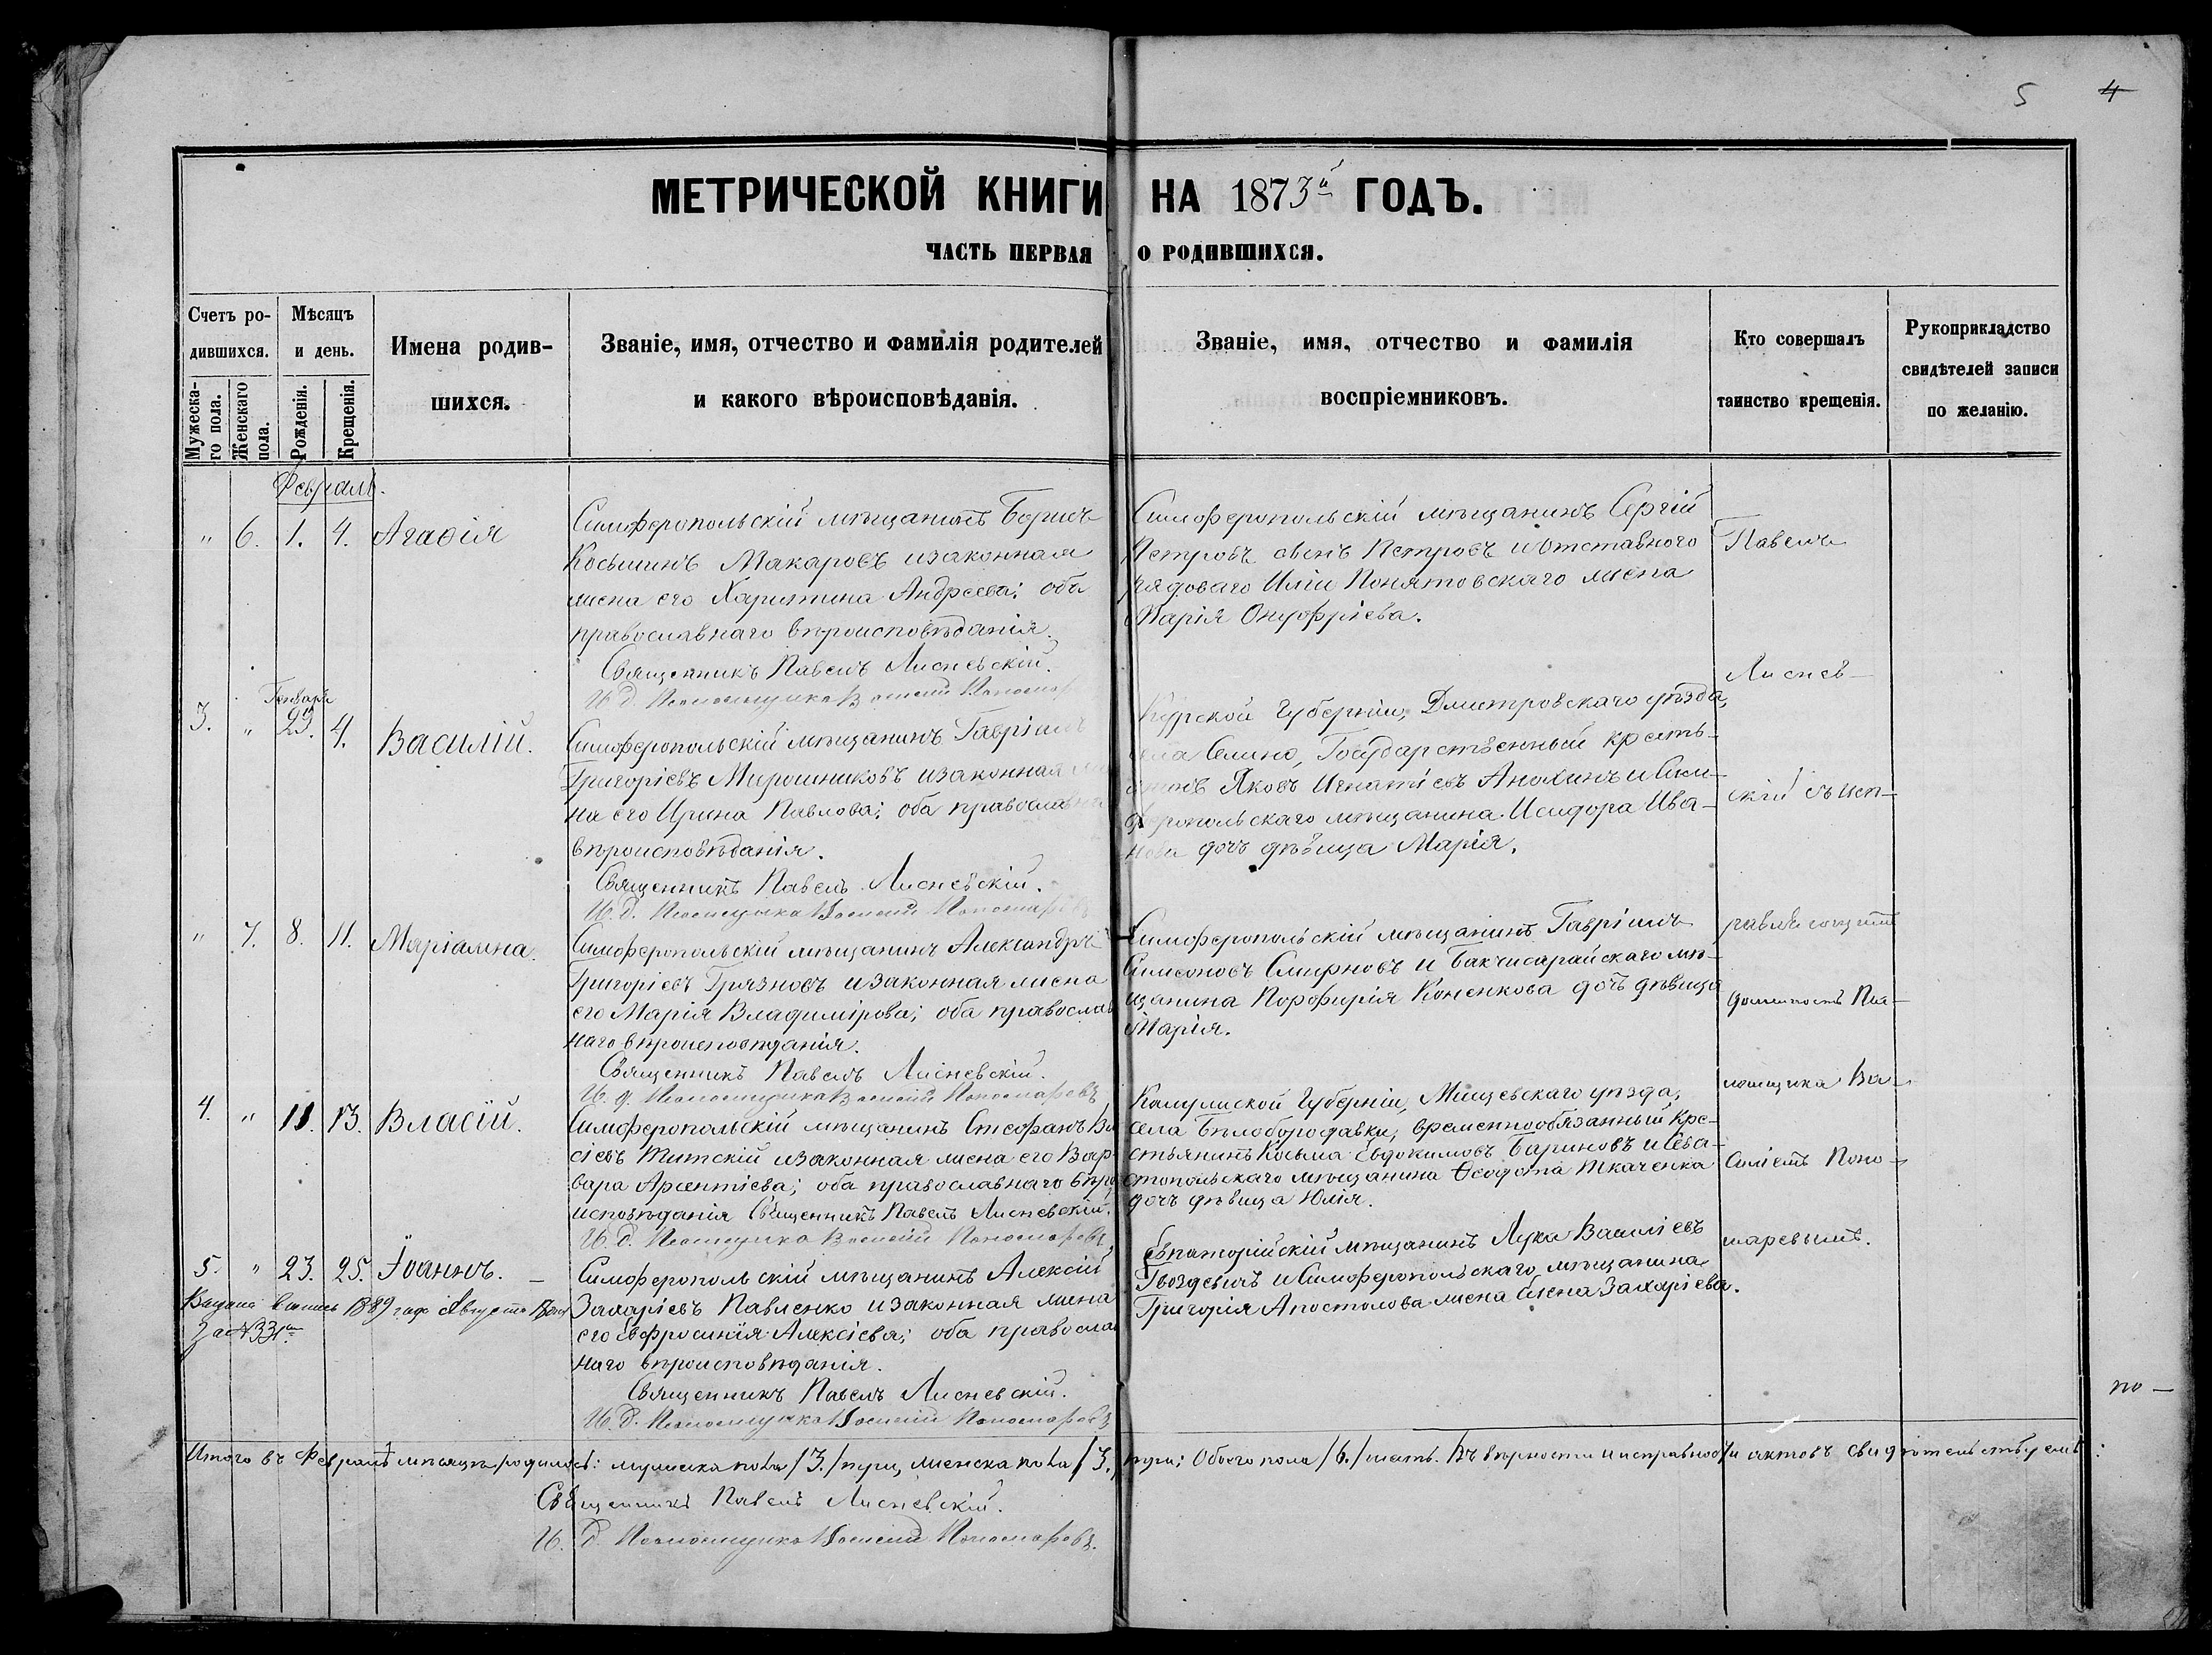 5 4
МЕТРИЧЕСКОЙ КНИГИ НА 1873й ГОДЪ.
ЧАСТЬ ПЕРВАЯ О РОДИВШИХСЯ.
Счетъ ро-
дившихся.
Мужеска-
го пола.
Женскаго
пола.
Мѣсяцъ
и день.
Рожденія.
Крещенія.
Имена родив-
шихся.
Званіе, имя, отчество и фамилія родителей
и какого вѣроисповѣданія.
Званіе, имя, отчество и фамилія
воспріемниковъ.
Кто совершалъ
таинство крещенія.
Рукоприкладство
свидѣтелей записи
по желанію.
Февраль.
" 6. 1. 4. Агаѳія
Симферопольскій мѣщанинъ Борисъ
Косьминъ Макаровъ и законная
жена его Харитина Андреева; оба
православнаго вѣроисповѣданія.
Священникъ Павелъ Лисневскій.
И. д. Псаломщика Василій Пономаревъ
Симферопольскій мѣщанинъ Сергій
Петровъ сынъ Петровъ и отставного
рядоваго Иліи Понятовскаго жена
Марія Онуфріева.
Генваря
3. " 29. 4. Василій.
Симферопольскій мѣщанинъ Гавріилъ
Григоріевъ Мирошниковъ и законная же
на его Ирина Павлова; оба православна
вѣроисповѣданія.
Священникъ Павелъ Лисневскій.
И. д. Псаломщика Василій Пономаревъ
Курской Губерніи, Дмитровскаго уѣзда,
села Селино, Государственный кресть-
янинъ Яковъ Игнатіевъ Анохинъ и Сим-
феропольскаго мѣщанина Исидора Ива-
нова дочь дѣвица Марія.
" 7. 8. 11. Маріамна.
Симферопольскій мѣщанинъ Александръ
Григоріевъ Грязновъ и законная жена
его Марія Владимірова; оба православ
наго вѣроисповѣданія.
Священникъ Павелъ Лисневскій.
И. д. Псаломщика Василій Пономаревъ
Симферопольскій мѣщанинъ Гавріилъ
Симеоновъ Смирновъ и Бакчисарайскаго мѣ-
щанина Порфирія Коненкова дочь дѣвица
Марія.
4. " 11. 13. Власій.
Симферопольскій мѣщанинъ Стефанъ Ва
сіевъ Титскій и законная жена его Вар-
вара Арсентіева; оба православнаго вѣро
исповѣданія Священникъ Павелъ Лисневскій.
И. д. Псаломщика Василій Пономаревъ
Калужской Губерніи, Мещевскаго уѣзда,
села Бѣлобородавки, временнообязанный кре-
стьянинъ Косьма Евдокимовъ Бариновъ и Сева-
стопольскаго мѣщанина Ѳеодота Ткаченка
дочь дѣвица Юлія.
5. " 23. 25. Іоаннъ.
Выдана выпись 1889 года Августа
за № 331м
Симферопольскій мѣщанинъ Алексій
Захаріевъ Павленко и законная жена
его Евфросинія Алексіева; оба православ
наго вѣроисповѣданія.
Священникъ Павелъ Лисневскій.
И. д. Псаломщика Василій Пономаревъ
Евпаторійскій мѣщанинъ Лука Василіевъ
Гвоздевичъ и Симферопольскаго мѣщанина
Григорія Апостолова жена Елена Захаріева.
Павелъ
Лиснев-
скій съ исп-
равляющимъ
должность Пса-
ломщика Ва-
силіемъ Поно-
маревымъ.
по-
Итого въ Февралѣ мѣсяцѣ родилось: мужска пола /3./ три, женска пола /3./ три; Обоего пола /6./ шесть. Въ вѣрности и исправности актовъ свидѣтельствуемъ:
Священникъ Павелъ Лисневскій.
И. д. Псаломщика Василій Пономаревъ.